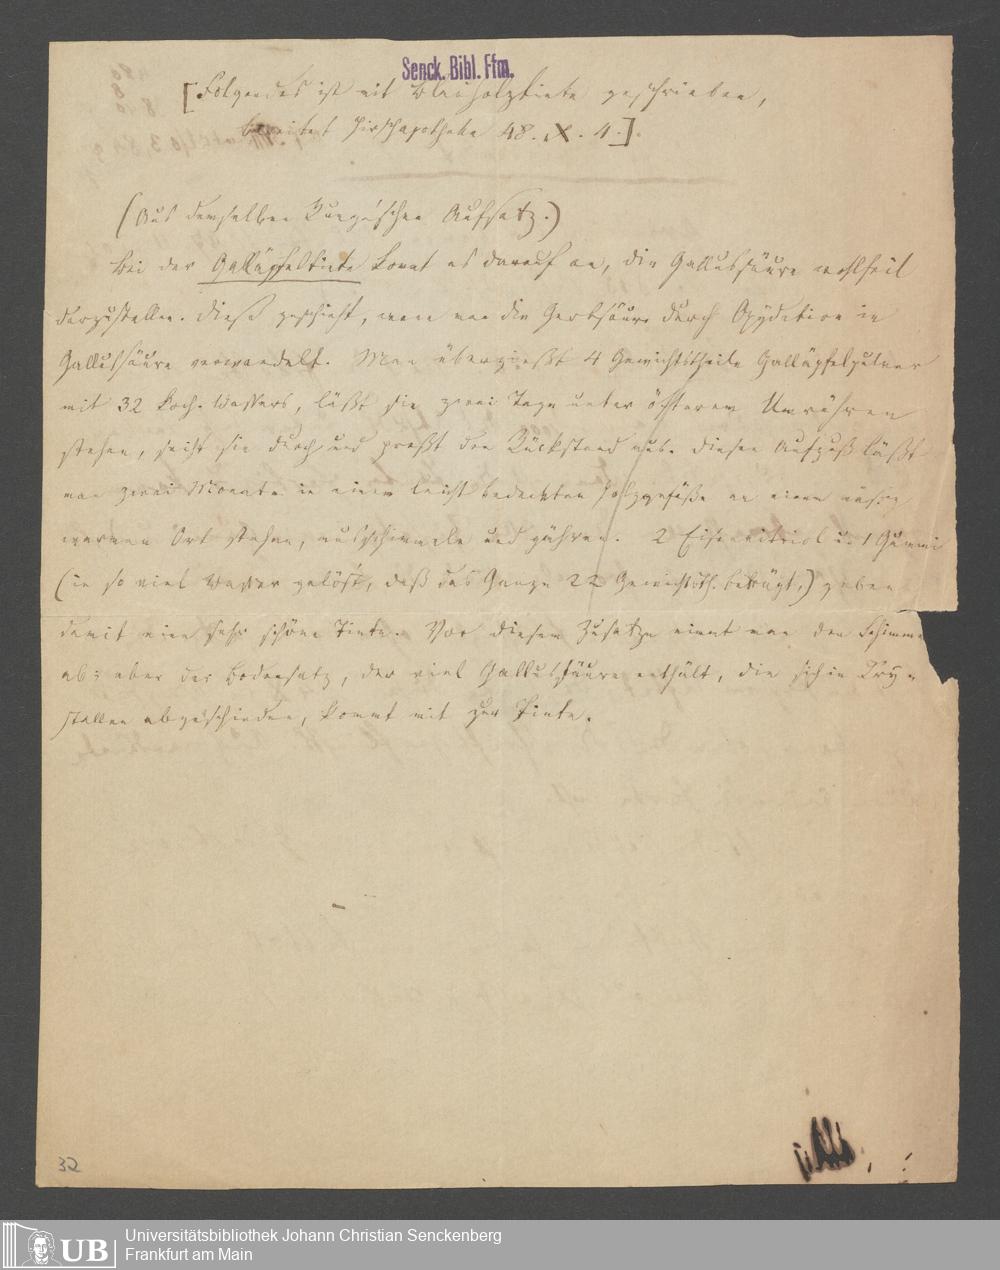 Senck. Bibl. Ffm.
[Folgendes ist mit Blauholztinte geschrieben,
bereitet Hirschapotheke 48. X. 4.]
(Aus demselben Runge'schen Aufsatz.)
Bei der Galläpfeltinte kommt es darauf an, die Gallussäure wohlfeil
darzustellen. Dieß geschieht, wenn man die Gerbsäure durch Oxydation in
Gallussäure verwandelt. Man übergießt 4 Gewichtstheile Galläpfelpulver
mit 32 koch. Wassers, läßt sie zwei Tage unter öfterem Umrühren
stehen, seiht sie durch und preßt den Rückstand aus. Diesen Aufguß läßt
man zwei Monate in einem leicht bedeckten Holzgefäße an einem
warmen Ort stehen, ausschimmeln und gähren. 2 Eisenvitriol u. 1 Gummi
(in so viel Wasser gelöst, daß das Ganze 22 Gewichtsth. beträgt,) geben
damit eine sehr schöne Tinte. Vor diesem Zusatze nimmt man den Schimme
ab; aber der Bodensatz, der viel Gallussäure enthält, die sich in Kry-
stallen abgeschieden, kommt mit zur Tinte.
32
UB
Universitätsbibliothek Johann Christian Senckenberg
Frankfurt am Main